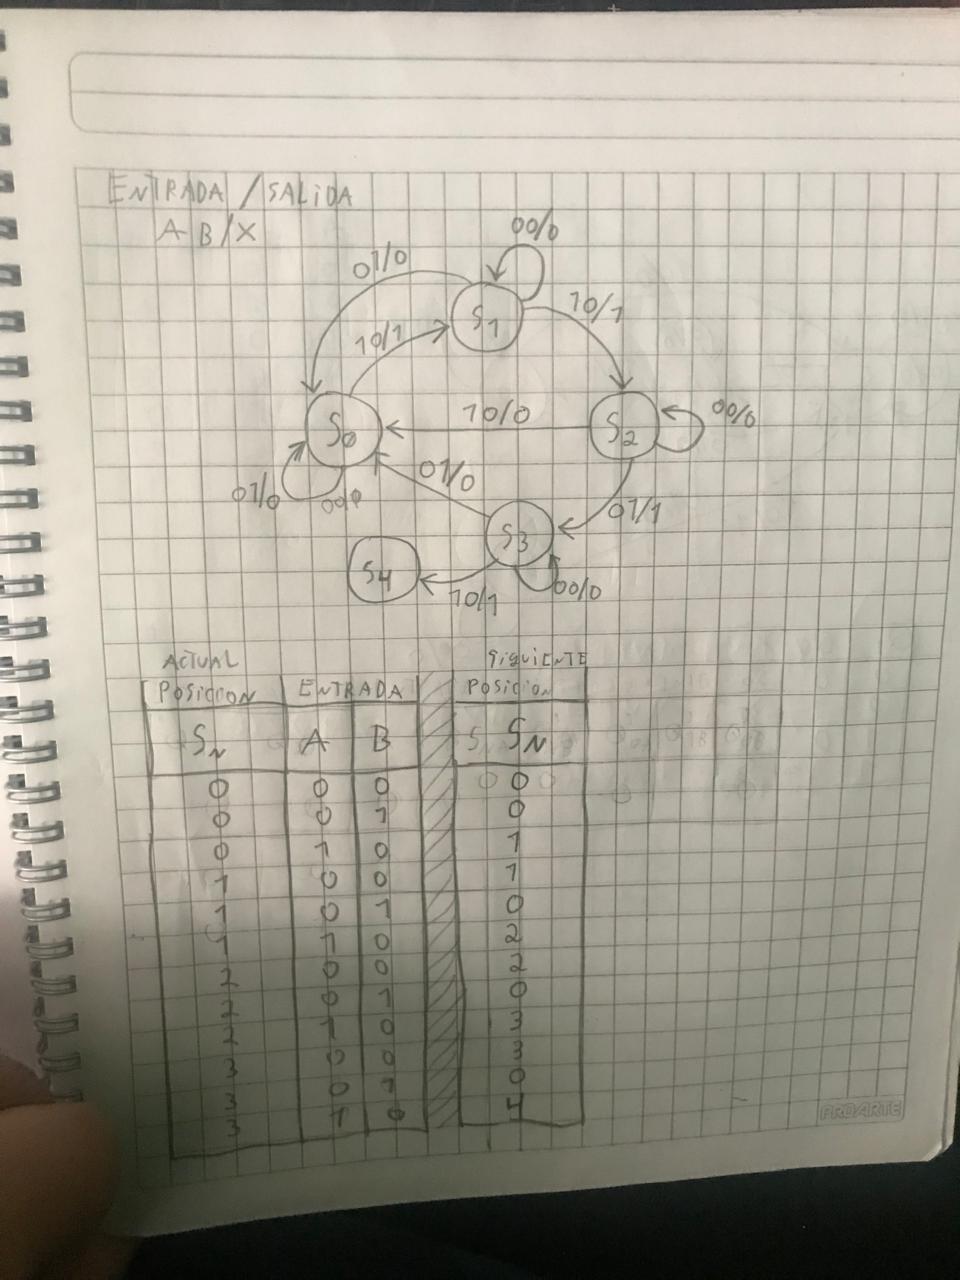 ENTRADA / SALIDA
A B/X
00/0
01/0
S1
10/1
10/1
S0
10/0
S2
00/0
01/0
01/0
00/0
S3
01/1
S4
10/1
00/0
ACTUAL SIGUIENTE
POSICION ENTRADA POSICION
SN A B SN
0 0 0 0
0 0 1 0
0 1 0 1
1 0 0 1
1 0 1 0
1 1 0 2
2 0 0 2
2 0 1 0
2 1 0 3
3 0 0 3
3 0 1 0
3 1 0 4
PROARTE